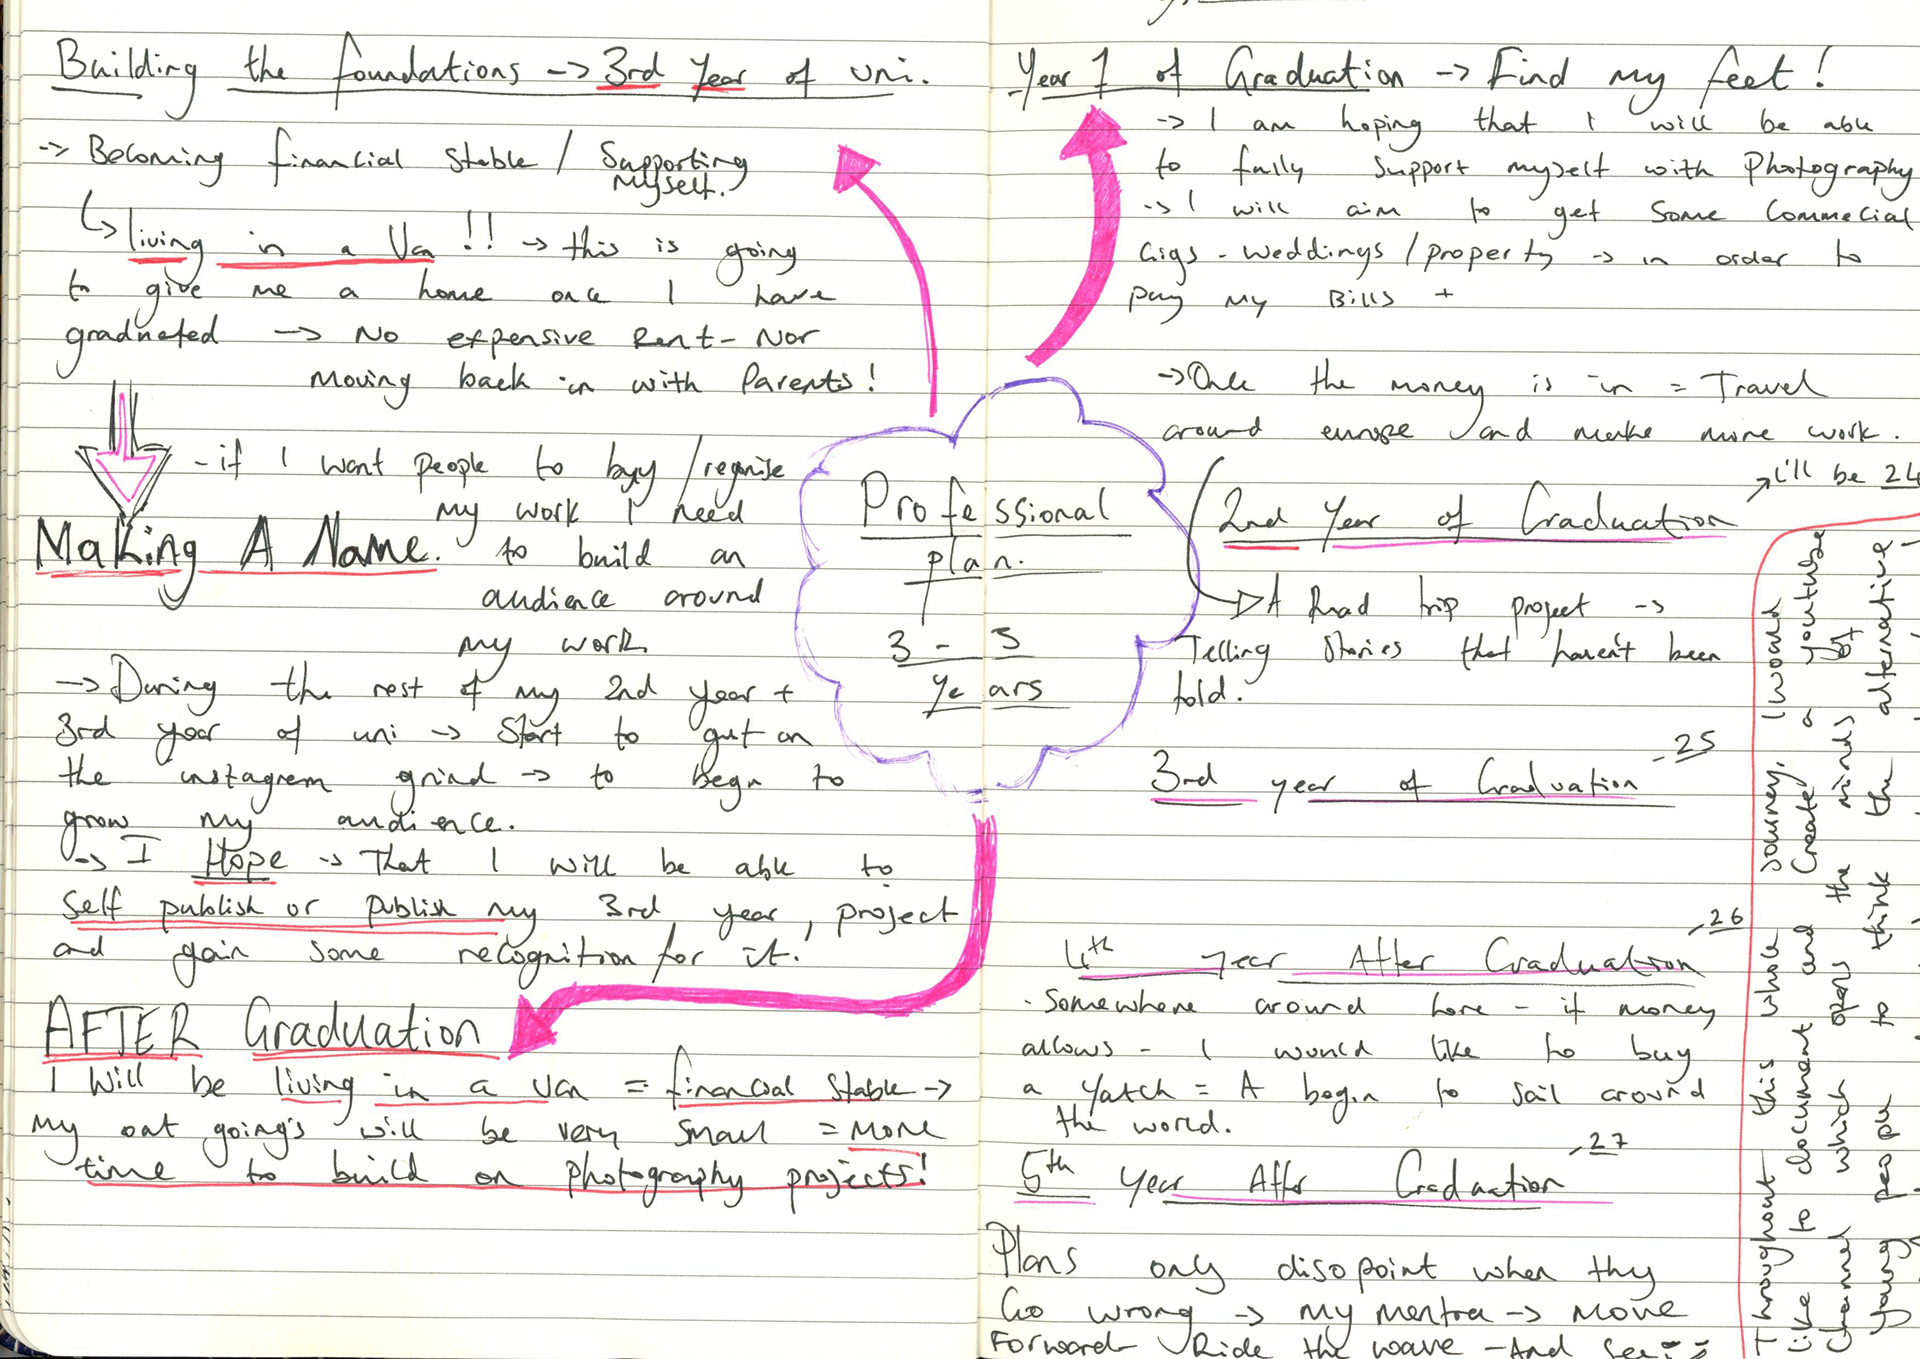 Building the foundations -> 3rd Year of uni.
-> Becoming financial stable / Supporting
Myself.
living in a Van !! -> this is going
to give me a home once I have
graduated -> No expensive Rent - Nor
Moving back in with Parents!
- if I want people to buy /
my work I need
Making A Name.
to build an
audience around
my work
-> During the rest of my 2nd year +
3rd year of uni -> Start to
the instagram grind -> to begin to
grow my audience.
-> I Hope -> That I will be able to
self publish or publish my 3rd year, project
and gain some recognition for it!
AFTER Graduation
I will be living in a van = financial stable ->
My out going's will be very small = More
time to build on photography projects!
Professional
plan.
3 - 5
years
Year 1 of Graduation -> Find my feet!
-> I am hoping that I will be able
to fully support myself with Photography
-> I will aim to get some Commecial
Gigs - weddings / property -> in order to
pay my Bills +
-> Once the money is in = Travel
around europe and make more work.
I'll be 24
2nd Year of Graduation
A Road trip project ->
Telling Stories that haven't been
told.
3rd year of Graduation - 25
4th year After Graduation - 26
- Somewhere around here - if money
allows - I would like to buy
a Yatch = A begin to sail around
the world.
5th Year After Graduation - 27
Plans only disopoint when thy
Go wrong -> my mentra -> Move
Forward Ride the wave - And see
Throughout this whole journey, I would
like to document and Create a youtube
Channel which opens the minds of
young people to think the alternative